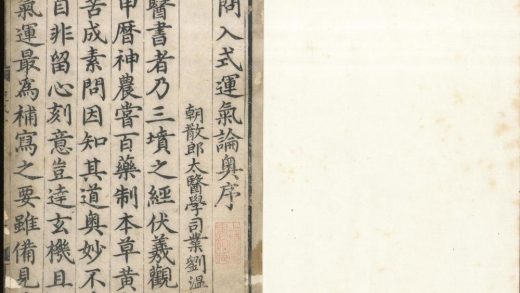 問入式運氣論奧序
朝散郎太醫學司業劉溫
醫書者乃三墳之經伏羲觀
甲曆神農嘗百藥制本草黃
苦成素問因知其道奧妙不
自非留心刻意豈達玄機且
氣運最爲補寫之要雖備見